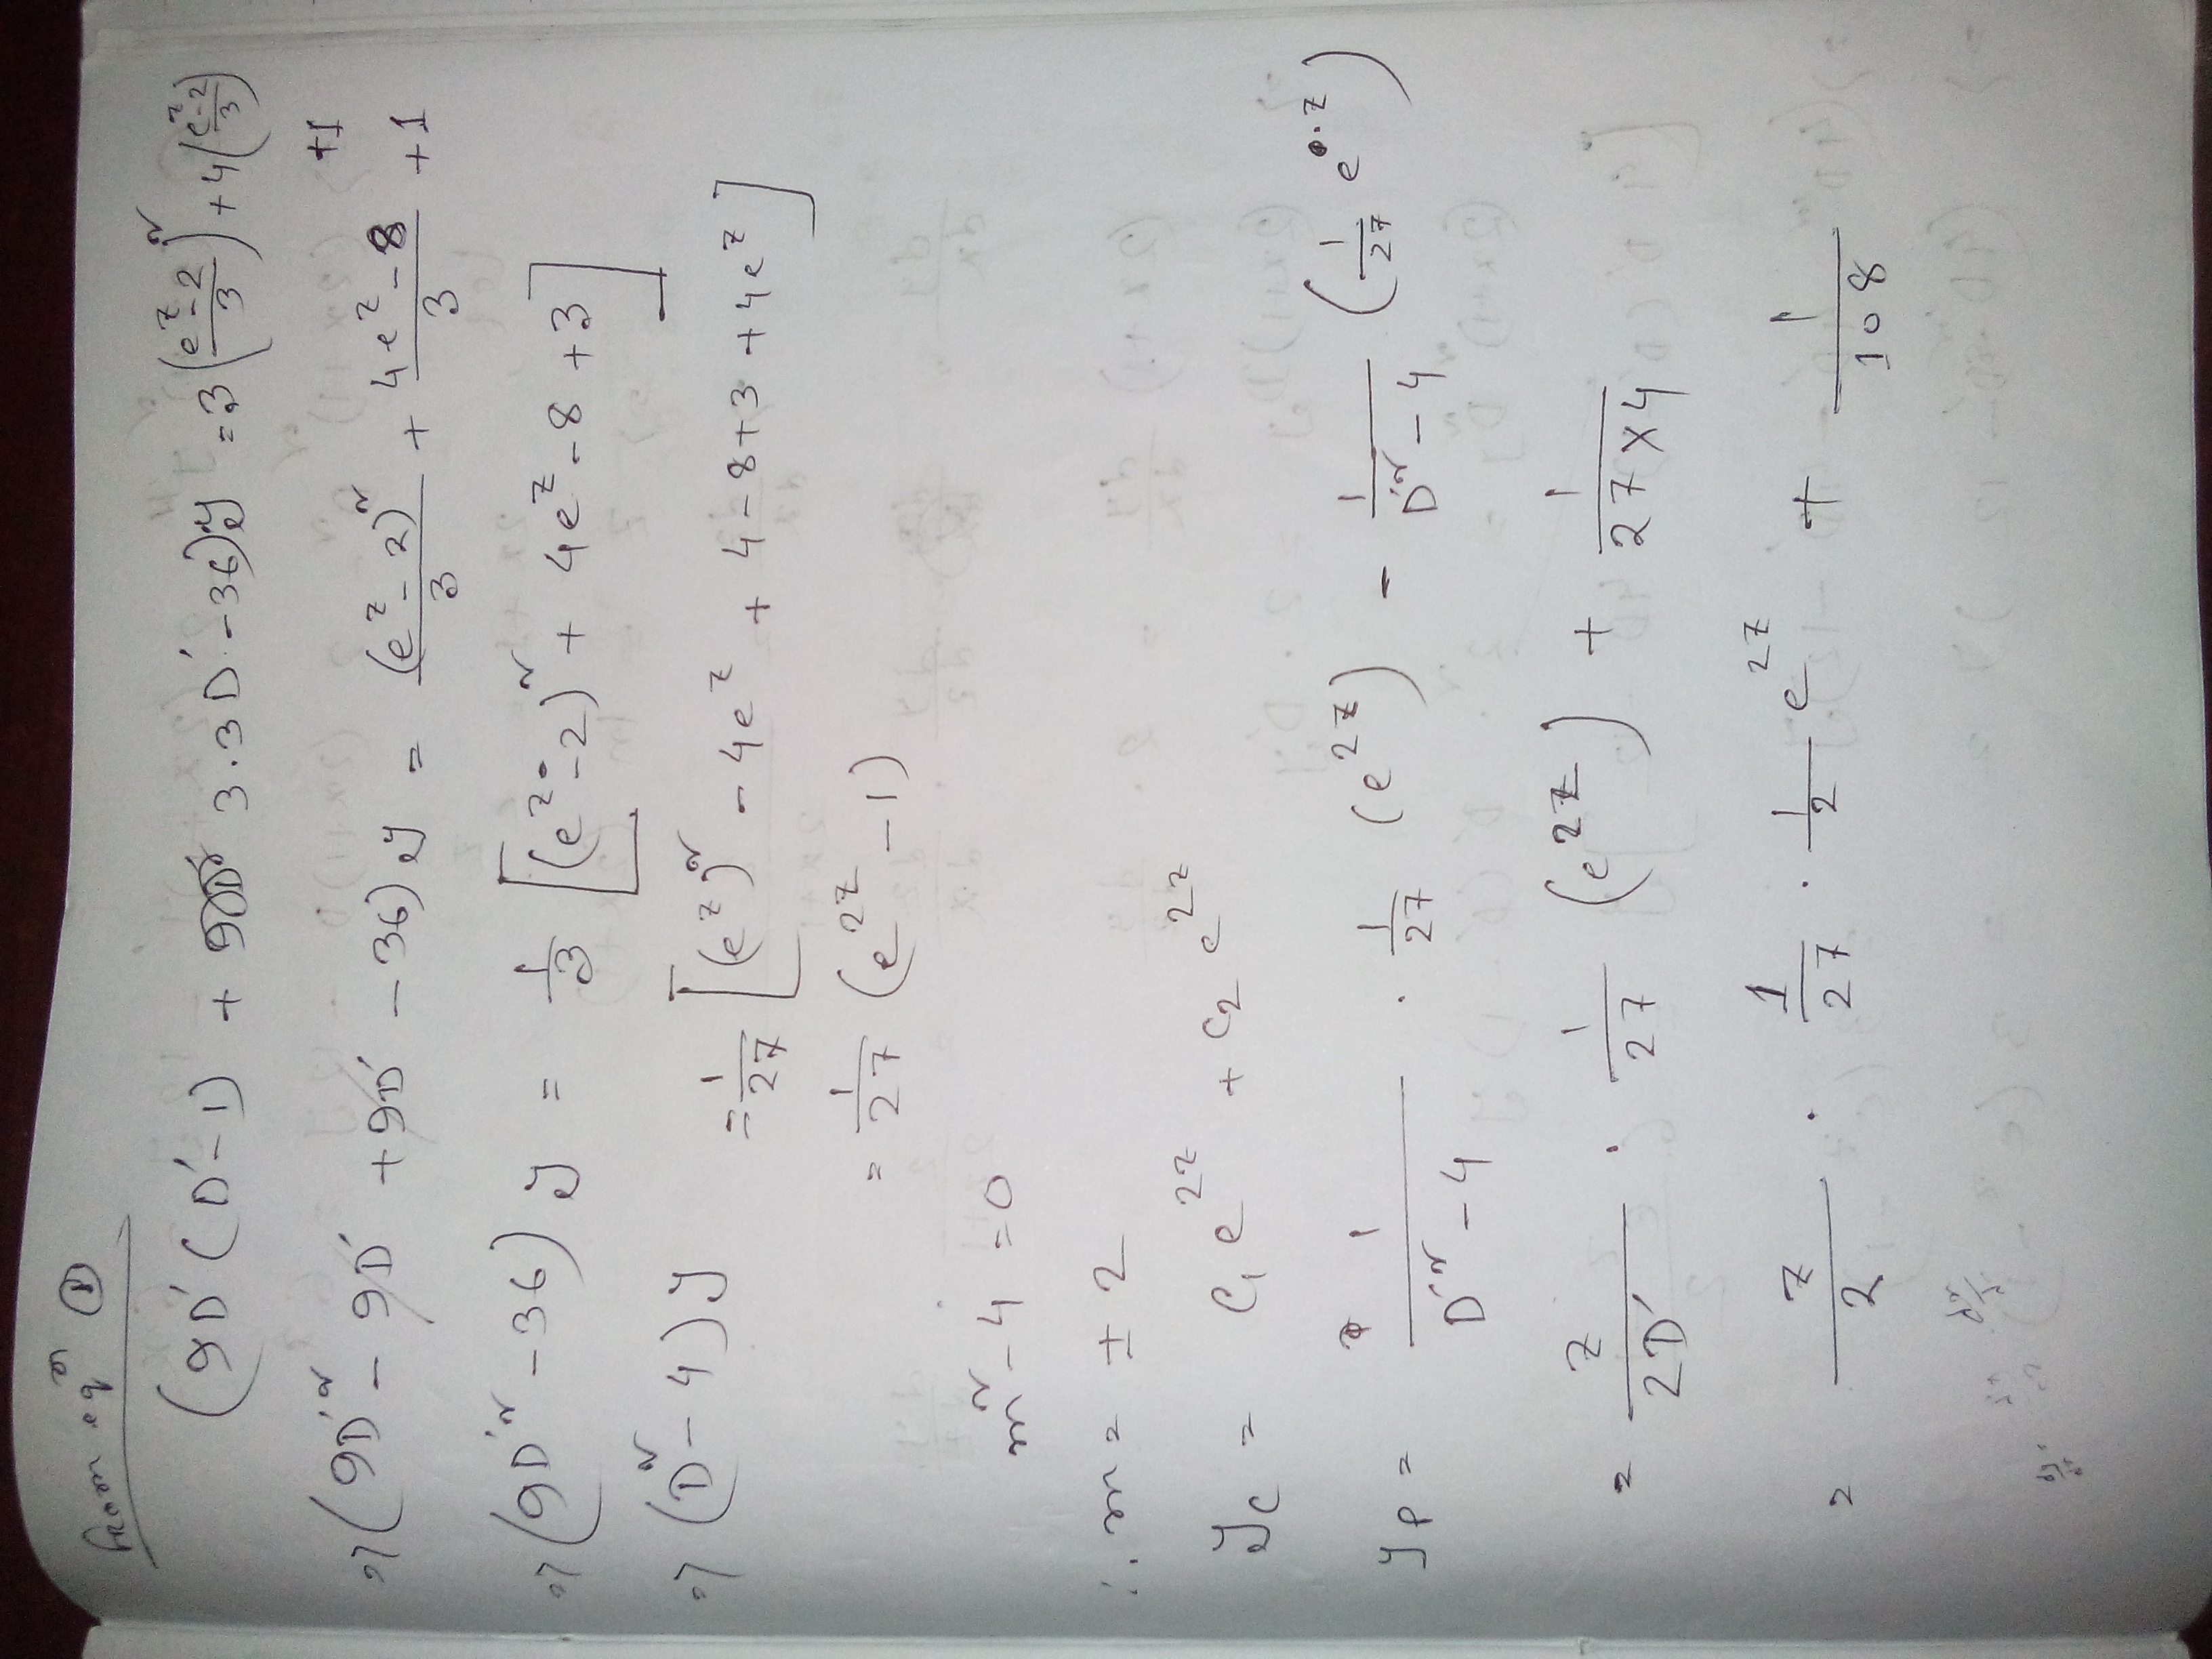 From eqn ①
(9D'(D'-1) + 9 3.3D'-36)y = 3((e^z-2)/3)² + 4((e^z-2)/3) +1
⇒ (9D'² - 9D' + 9D' - 36) y = (e^z-2)²/3 + (4e^z-8)/3 + 1
⇒ (9D'² - 36) y = 1/3 [(e^z-2)² + 4e^z - 8 + 3]
⇒ (D² - 4) y = 1/27 [(e^z)² - 4e^z + 4 - 8 + 3 + 4e^z]
= 1/27 (e^2z - 1)
m² - 4 = 0
∴ m = ± 2
y_c = C₁ e^2z + C₂ e^2z
y_p = 1/(D'² - 4) . 1/27 (e^2z) - 1/(D'² - 4) (1/27 e^0.z)
= z/2D' . 1/27 (e^2z) + 1/(27×4)
= z/2 . 1/27 . 1/2 e^2z + 1/108